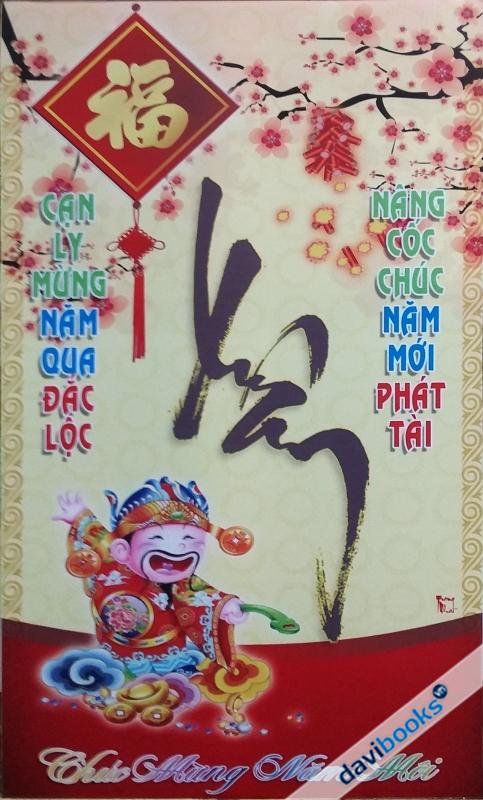 福
CẠN
LY
MỪNG
NĂM
QUA
ĐẮC
LỘC
Xuân
NÂNG
CỐC
CHÚC
NĂM
MỚI
PHÁT
TÀI
Chúc Mừng Năm Mới
davibooks.vn